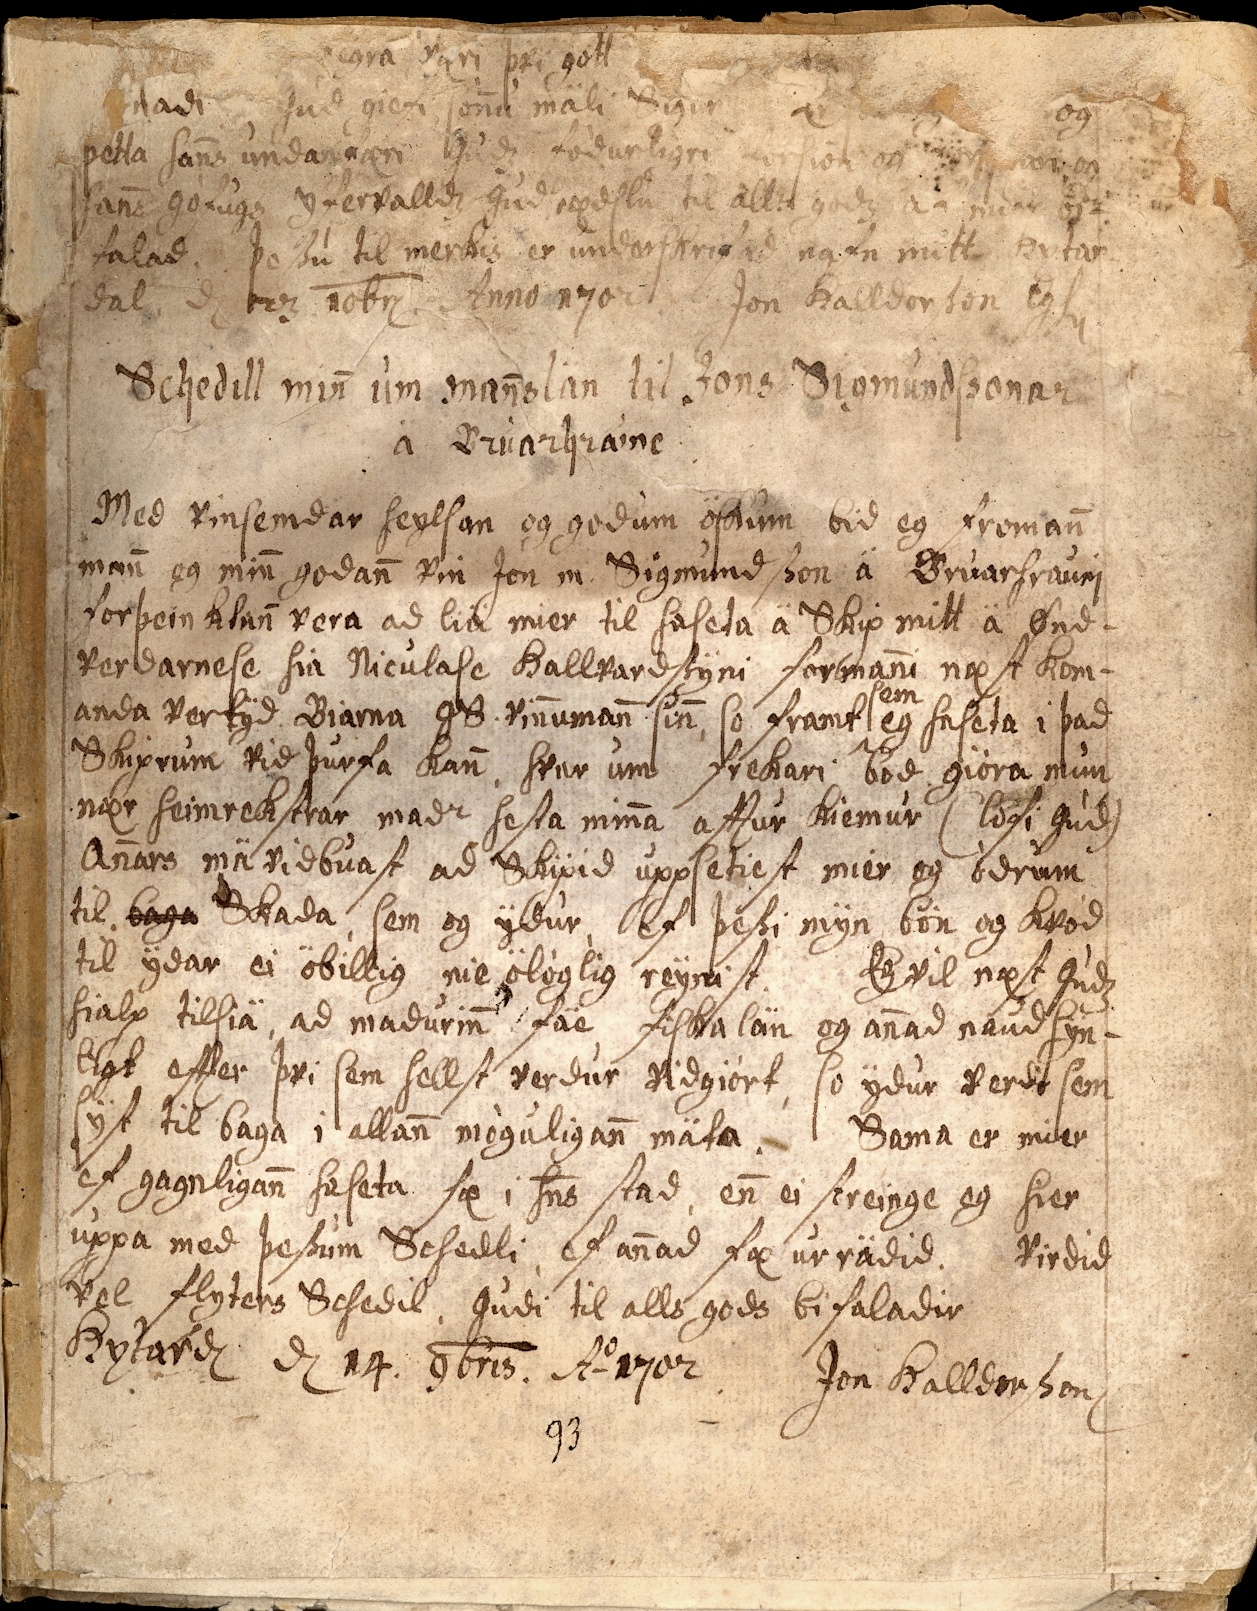 væri því gott
nadi Gud giefi sönnu mäli Sigur og
þetta hanns undanfæri Gudz fødurligri forsion og
hanns gøfugz yfervalldz Gud til allz godz af mier
falad. Þeßu til merkis er underskrifad nafn mitt Hytar
dal, dz 10bris Anno 1702 Jon Halldorßon
Schedill minn um mannslän til Jons Sigmundßonar
ä Bruarhraune
Med vinsemdar heylsan og godum öskum bid eg froman̄
man̄ og min̄ godan̄ vin Jon m Sigmundßon ä Bruarhrauni
forþeinktan̄ vera ad liä mier til haseta ä Skip mitt ä Ønd-
verdarnese hia Niculase Hallvardßyni forman̄i næst kom-
anda vertÿd Biarna GS vin̄uman̄ sin̄, so framt sem eg haseta i þad
Skiprum vid þurfa kan̄, hvar um frekari bod giöra mun
nær heimrekstrar madr hesta min̄a aftur kiemur (lofi Gud)
An̄ars mä vidbuast ad Skipid uppsetiest mier og ødrum
til baga Skada, sem og ÿdur, ef þeßi mÿn bön og krød
til ÿdar ei öbillig nie ölöglig reÿnist. Eg vil næst Gudz
hialp tilsiä, ad madurin̄ fäe fiska län og an̄ad naudsÿn-
ligt effter þvi sem hellst verdur vidgiört, so ÿdur verdi sem
sÿst til baga i allan̄ möguligan̄ mäta. Sama er mier
ef gagnligan̄ haseta fæ i hn̄s stad, en̄ ei streinge eg hier
uppa med þeßum Schedli, ef an̄ad fæ urrädid. Virdid
vel flyters Schedil, Gudi til alls gods bifaladir
Hytard dz 14. 9bris. Ao 1702 Jon Halldorßon
93